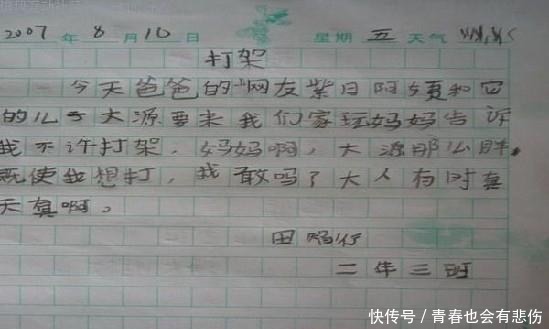 2007 年 8 月 10 日 星期 五 天气
打架
今天爸爸的"网友紫日阿姨和它
的儿子大源要来我们家玩妈妈告诉
我不许打架。妈妈啊，大源那么胖，
既使我想打，我敢吗？大人有时真
天真啊。
田 行
二年三班
快传号 / 青春也会有悲伤